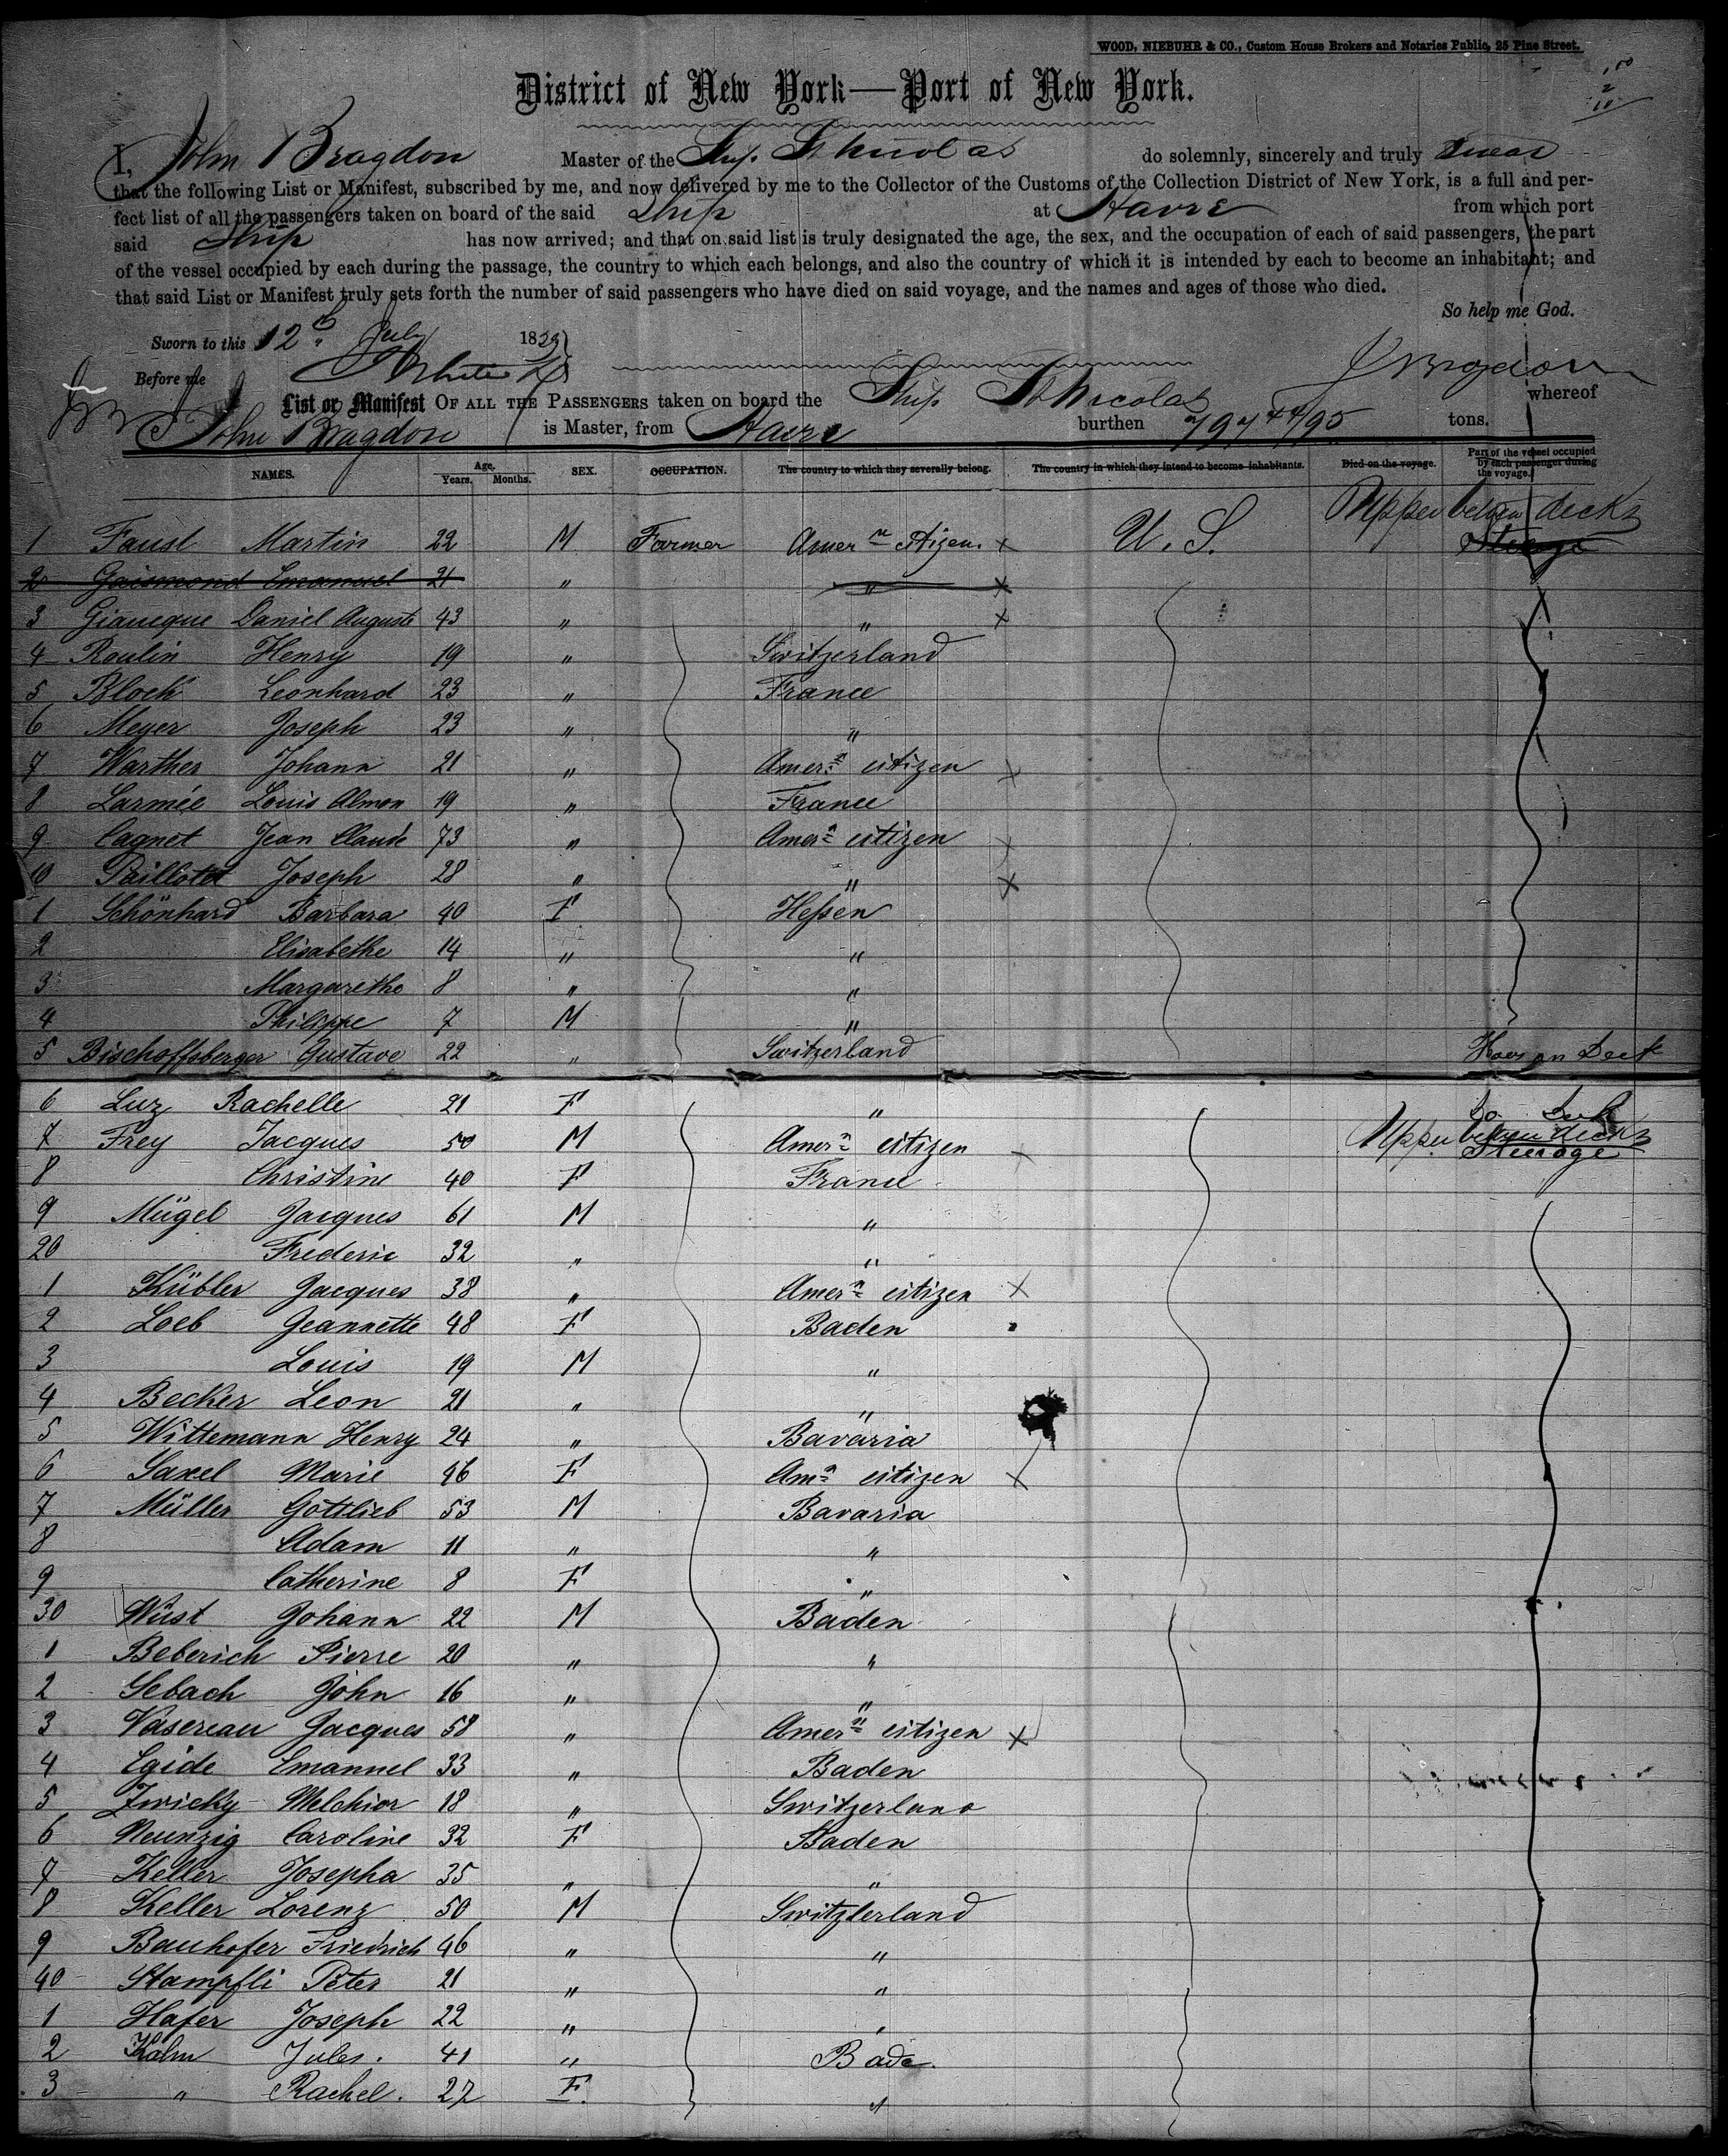 WOOD, NIEBUHR & CO., Custom House Brokers and Notaries Public, 25 Pine Street.
District of New York—Port of New York.
I, John Bragdon Master of the Ship St Nicolas do solemnly, sincerely and truly swear
that the following List or Manifest, subscribed by me, and now delivered by me to the Collector of the Customs of the Collection District of New York, is a full and per-
fect list of all the passengers taken on board of the said Ship at Havre from which port
said Ship has now arrived; and that on said list is truly designated the age, the sex, and the occupation of each of said passengers, the part
of the vessel occupied by each during the passage, the country to which each belongs, and also the country of which it is intended by each to become an inhabitant; and
that said List or Manifest truly sets forth the number of said passengers who have died on said voyage, and the names and ages of those who died.
So help me God.
Sworn to this 12th July 1859
Before me J Bragdon
List or Manifest OF ALL THE PASSENGERS taken on board the Ship St Nicolas whereof
John Bragdon is Master, from Havre burthen 797 44/95 tons.
NAMES. Age. Years. Months. SEX. OCCUPATION. The country to which they severally belong. The country in which they intend to become inhabitants. Died on the voyage. Part of the vessel occupied by each passenger during the voyage.
Upper between decks
1 Faust Martin 22 M Farmer Amern citizen. x U. S. Steerage
2 Gaismond Emanuel 21 " " x
3 Giaucque Daniel Auguste 43 " " x
4 Roulin Henry 19 " Switzerland
5 Bloch Leonhard 23 " France
6 Meyer Joseph 23 " "
7 Warther Johann 21 " Amern citizen x
8 Larmée Louis Almon 19 " France
9 Cagnot Jean Claude 73 " Amern citizen x
10 Paillotet Joseph 28 " " x
1 Schönhard Barbara 40 F Hessen
2 Elisabethe 14 " "
3 Margarethe 8 " "
4 Philippe 7 M "
5 Bischoffsberger Gustave 22 " Switzerland House on Deck
6 Luz Rachelle 21 F " Do Deck
7 Frey Jacques 50 M Amern citizen x Upper between decks
Steerage
8 Christine 40 F France
9 Mügel Jacques 61 M "
20 Frederic 32 " "
1 Kübler Jacques 38 " Amern citizen x
2 Loeb Jeannette 48 F Baden
3 Louis 19 M "
4 Becker Leon 21 " "
5 Wittemann Henry 24 " Bavaria
6 Saxel Marie 46 F Amn citizen x
7 Müller Gottlieb 53 M Bavaria
8 Adam 11 " "
9 Catherine 8 F "
30 Wüst Johann 22 M Baden
1 Beberich Pierre 20 " "
2 Sebach John 16 " "
3 Vasereau Jacques 58 " Amern citizen x
4 Egide Emanuel 33 " Baden
5 Zwicky Melchior 18 " Switzerland
6 Neunzig Caroline 32 F Baden
7 Keller Josepha 35 " "
8 Keller Lorenz 50 M Switzlerland
9 Bauhofer Friedrich 46 " "
40 Stampfli Peter 21 " "
1 Hafer Joseph 22 " "
2 Kahn Jules. 41 " Bade.
3 " Rachel. 27 F. "